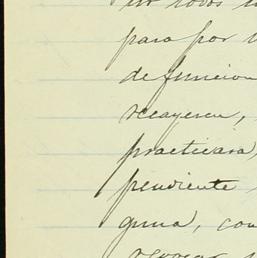 en todos
para por
de funcion
recayeren,
practicará,
pendiente
guna, con